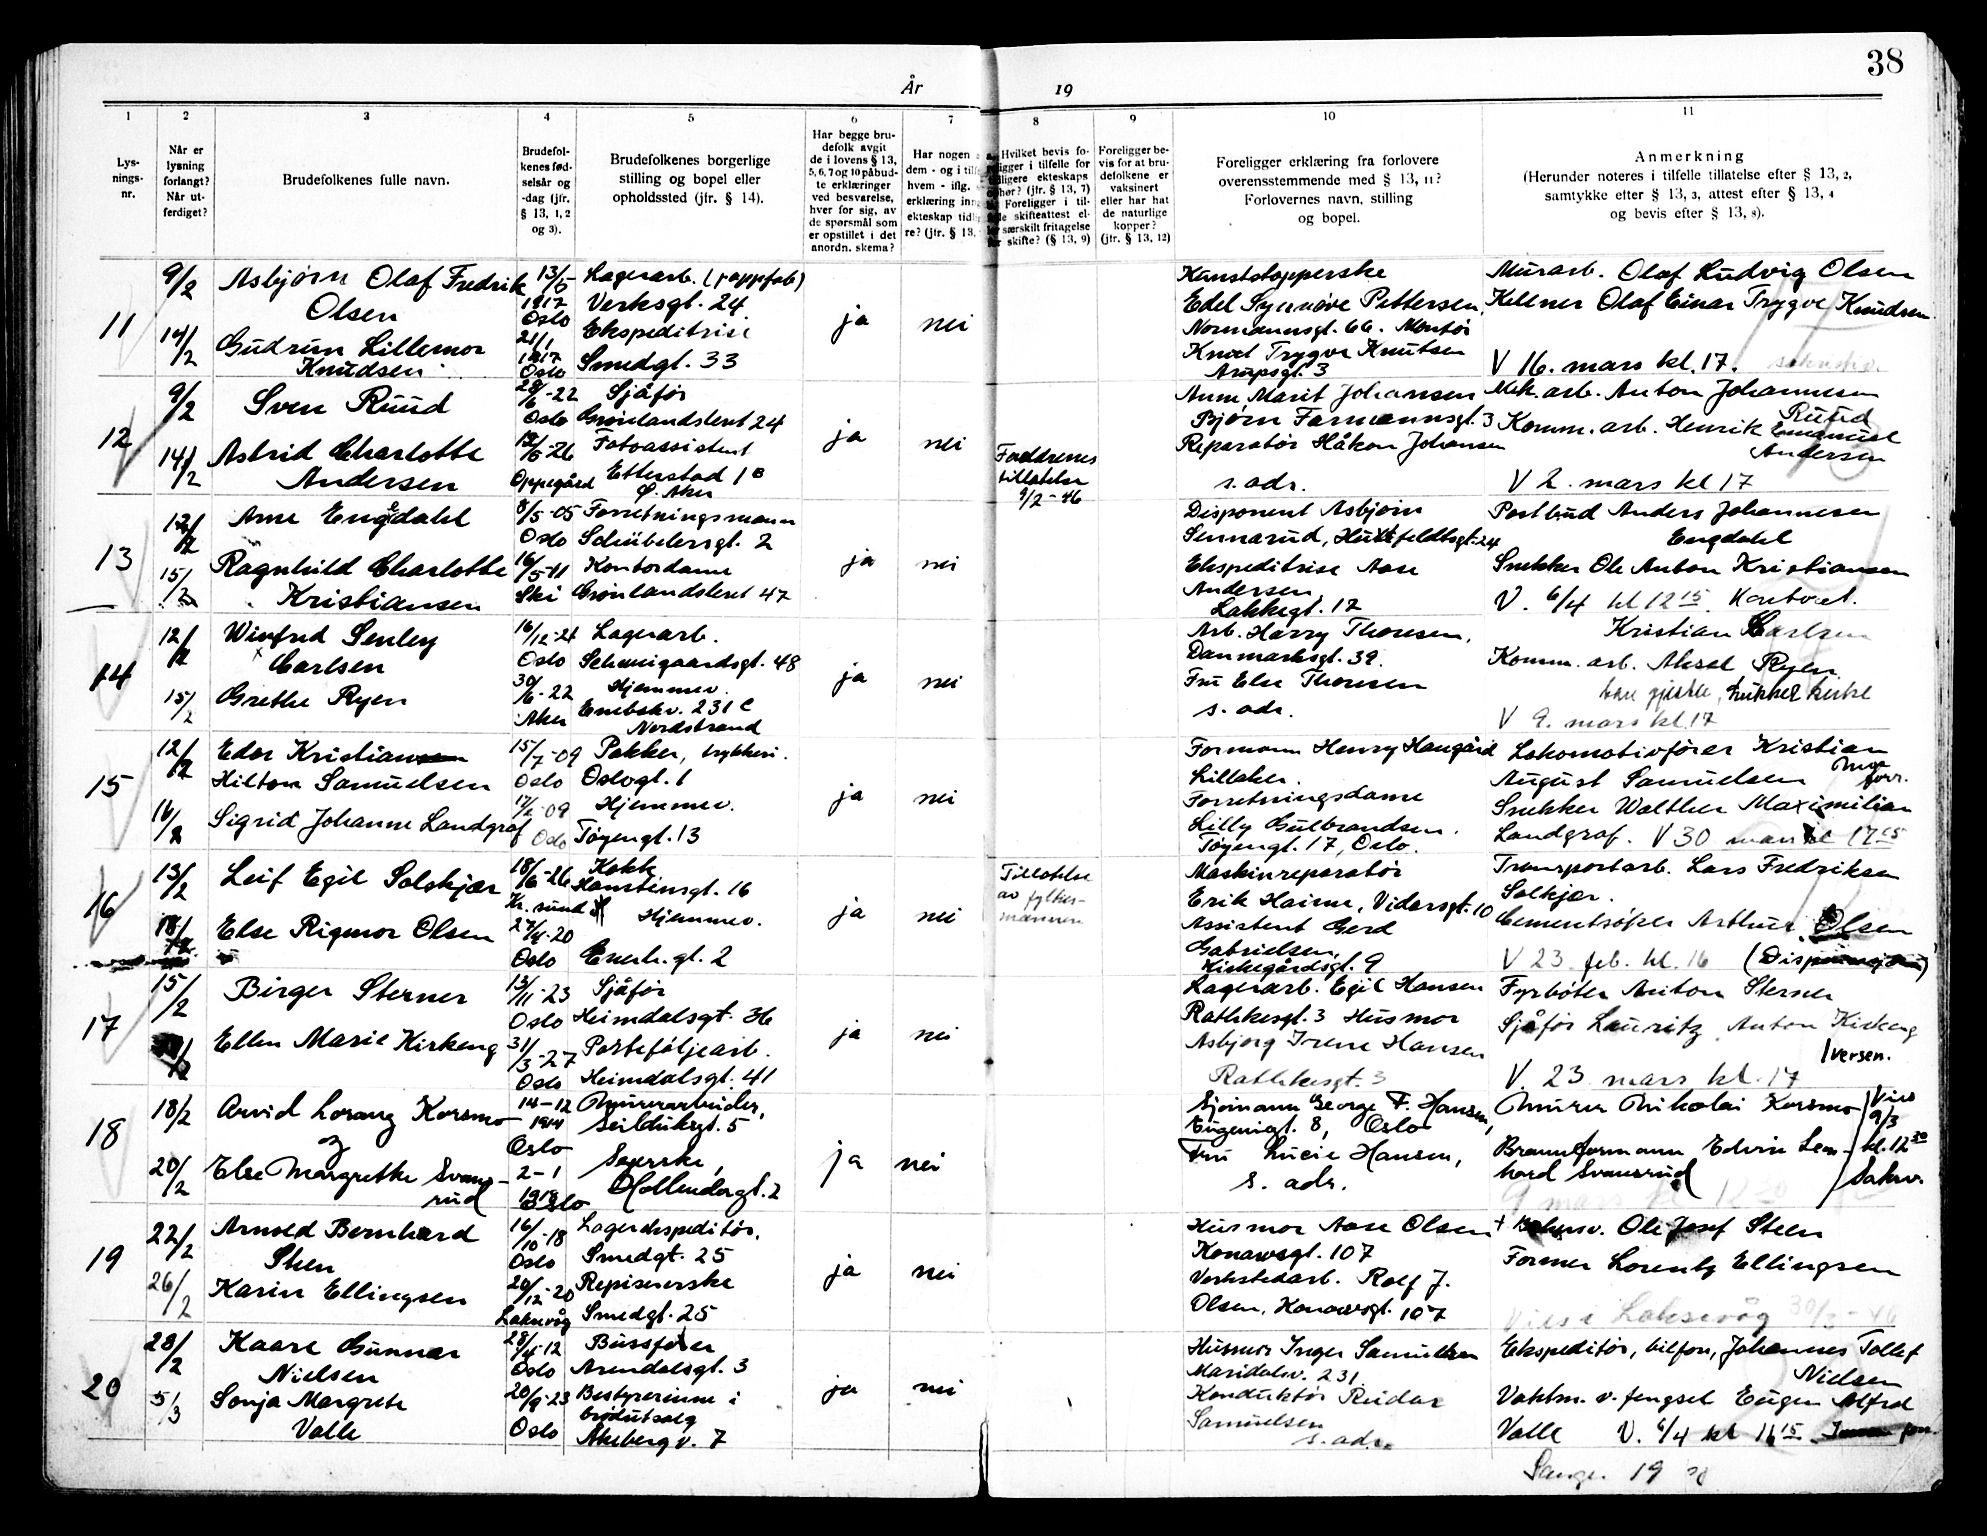 38
År 19
1 2 3 4 5 6 7 8 9 10 11
Lys-
nings-
nr.
Når er
lysning
forlangt?
Når ut-
ferdiget?
Brudefolkenes fulle navn.
Brudefol-
kenes fød-
selsår og
-dag (jfr.
§ 13, 1, 2
og 3).
Brudefolkenes borgerlige
stilling og bopel eller
opholdssted (jfr. § 14).
Har begge bru-
defolk avgit
de i lovens § 13,
5, 6, 7 og 10 påbud-
te erklæringer
ved besvarelse,
hver for sig, av
de spørsmål som
er opstillet i det
anordn. skema?
Har nogen
dem - og i tilf
hvem - iflg.
erklæring inn
ekteskap tidl
re? (jfr. § 13,
Hvilket bevis fo-
ligger i tilfelle for
ligere ekteskaps
hør? (jfr. § 13, 7)
Foreligger i til-
le skifteattest el-
særskilt fritagelse
skifte? (§ 13, 9)
Foreligger be-
vis for at bru-
defolkene er
vaksinert
eller har hat
de naturlige
kopper?
(jfr. § 13, 12)
Foreligger erklæring fra forlovere
overensstemmende med § 13, 11?
Forlovernes navn, stilling
og bopel.
Anmerkning
(Herunder noteres i tilfelle tillatelse efter § 13, 2,
samtykke efter § 13, 3, attest efter § 13, 4
og bevis efter § 13, 8).
11
9/2 Asbjørn Olaf Fredrik
Olsen
13/5
1917
Oslo
Lagerarb. (pappfab)
Verksgt. 24.
14/2 Gudrun Lillemor
Knudsen
21/1
1917
Oslo
Ekspeditrise
Smedgt. 33
ja nei
Kunststopperske
Edel Synnøve Pettersen,
Normannsgt. 66. Montør
Knut Trygve Knutsen
Arupsgt. 3
Murarb. Olaf Ludvig Olsen
Kellner Olaf Einar Trygve Knudsen.
V 16. mars kl. 17.
12
9/2 Sven Ruud
28/6-22
Oslo
Sjåfør
Grønlandsleret 24
14/2 Astrid Charlotte
Andersen
12/5-26
Oppegård
Fotoassistent
Etterstad 1 B
Ø. Aker
ja nei
Foreldrenes
tillatelse
9/2-46
Anne Marit Johansen
Bjørn Farmannsgt. 3
Reparatør Håkon Johansen
s. adr.
Mek. arb. Anton Johannesen
Ruud
Komm. arb. Henrik Emanuel
Andersen
V 2. mars kl 17
13
12/2 Arne Engdahl
8/5-05
Oslo
Forretningsmann
Schübelersgt. 2
15/2 Ragnhild Charlotte
Kristiansen
16/5-11
Ski
Kontordame
Grønlandsleret 47
ja nei
Disponent Asbjørn
Sennarud, Huitfeldtsgt. 24
Ekspeditrise Aase
Andersen
Lakkegt. 12
Postbud Anders Johannesen
Engdahl
Snekker Ole Anton Kristiansen
V. 6/4 kl 12 15. Kontoret.
14
12/2 Winfred Senley
Carlsen
16/12-21
Oslo
Lagerarb.
Schweigaardsgt. 48
15/2 Grethe Ryen
30/6-22
Aker
Hjemmev.
Enebakkv. 231 C
Nordstrand
ja nei
Arb. Harry Thoresen,
Danmarksgt. 39.
Fru Else Thoresen
s. adr.
Kristian Carlsen
Komm. arb. Aksel Ryen
bare gjester, lukket kirke
V 9. mars kl 17
15
12/2 Edor Kristian
Hilton Samuelsen
15/7-09
Oslo
Pakker, trykkeri.
Oslogt. 1
16/2 Sigrid Johanne Landgraf
09
Oslo
Hjemmev.
Tøyengt. 13
ja nei
Formann Henry Haugård
Lilleaker.
Forretningsdame
Lilly Gulbrandsen.
Tøyengt. 17, Oslo.
Lokomotivfører Kristian
August Samuelsen
Snekker Walther Maximilian
Landgraf. V 30 mars kl 17 15
16
13/2 Leif Egil Solskjær
18/6-26
Kr. sund N
Kokk
Hanstensgt. 16
18/2 Else Rigmor Olsen
27/4-20
Oslo
Hjemmev.
Enerh. gt. 2
ja nei
Tillatelse
av fylkes-
mannen
Maskinreparatør
Erik Haime, Vidarsgt. 10
Assistent Gerd
Gabrielsen,
Kirkegårdsgt. 9
Transportarb. Lars Fredriksen
Solkjær.
Cementstøper Arthur Olsen
V 23. feb. kl. 16
17
15/2 Birger Sterner
13/11-23
Oslo
Sjåfør
Heimdalsgt. 36
Ellen Marie Kirkeng
31/3-27
Oslo
Porteføljearb.
Heimdalsgt. 41
ja nei
Lagerarb. Egil Hansen
Rathkesgt. 3 Husmor
Asbjørg Irene Hansen
Rathkesgt. 3
Fyrbøter Anton Sterner
Sjåfør Lauritz Anton Kirkeng
Iversen.
V. 23 mars kl. 17
18
18/2 Arvid Lorang Korsmo
14-12
1914
Oslo
Murerarbeider,
Seilduksgt. 5
20/2 Else Margrethe Svens-
rud
2-1
1918
Oslo
Syerske,
Hollendergt. 2
ja nei
Sjømann George F. Hansen,
Eugeniegt. 8, Oslo
Fru Lucie Hansen,
s. adr.
Murer Nikolai Korsmo
Brannformann Edvin Leon-
hard Svensrud
Vies
9/3
kl. 12 30
Sakr.
19
22/2 Arnold Bernhard
Steen
16/10-18
Oslo
Lagerekspeditør.
Smedgt. 25
26/2 Karin Ellingsen
20/12-20
Laksevåg
Servererske
Smedgt. 25
ja nei
Husmor Aase Olsen
Konowsgt. 107
Verkstedarb. Rolf J.
Olsen, Konowsgt. 107
Ole Josef Steen
Former Lorentz Ellingsen
Vies i Laksevåg 30/3-46
20
28/2 Kaare Gunnar
Nielsen
28/4-12
Oslo
Bussfører
Arendalsgt. 3
5/3 Sonja Margrete
Valle
20/9-23
Oslo
Bestyrerinne i
brødutsalg
Åkebergv. 7
ja nei
Husmor Inger Samuelsen
Maridalsv. 231
Konduktør Reidar
Samuelsen
s. adr.
Ekspeditør, bilforr, Johannes Tollef
Nielsen
Vaktm. v. fengsel Eugen Alfred
Valle V. 6/4 kl 16 15